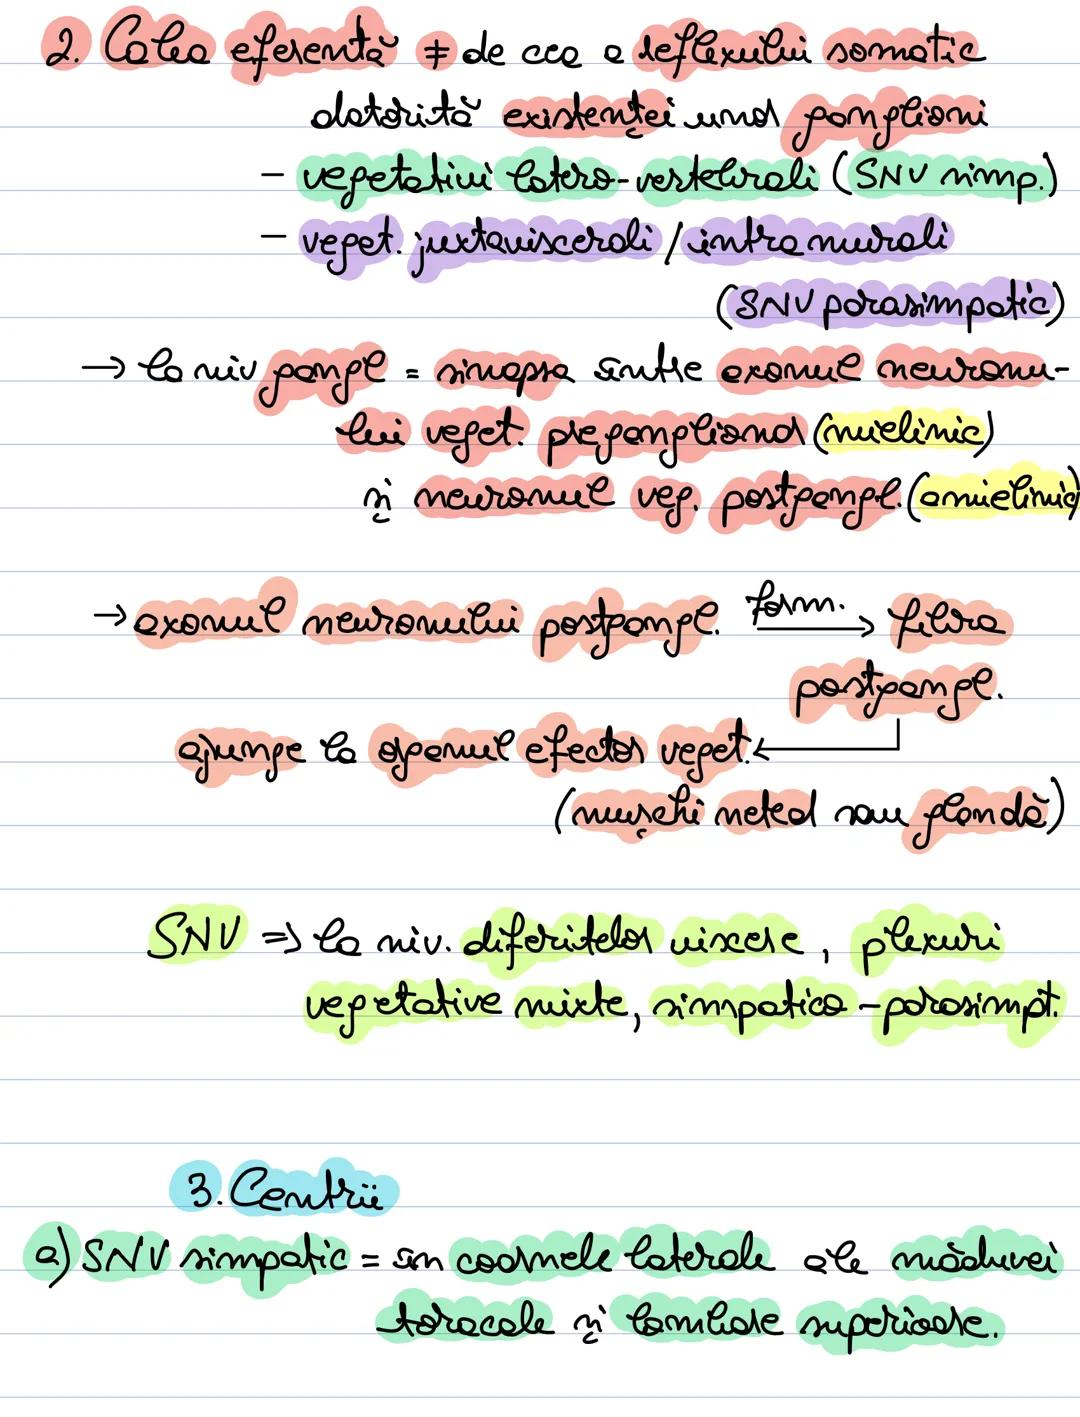 2. Calea eferentă ≠ de cea a reflexului somatic
datorită existenței unor ganglioni
- vegetativi latero-vertebrali (SNV simp.)
- veget. juxtaviscerali / intramurali
(SNV parasimpatic)
→ la niv gangl = sinapsa între axonul neuronu-
lui veget. preganglionar (mielinic)
și neuronul veg. postgangl. (amielinic)
→ axonul neuronului postgangl. form. → fibra
postgangl.
ajunge la organul efector veget. ←
(mușchi neted sau glandă)
SNV => la niv. diferitelor viscere, plexuri
vegetative mixte, simpatico-parasimpt.
3. Centrii
a) SNV simpatic = în coarnele laterale ale măduvei
toracale și lombare superioare.